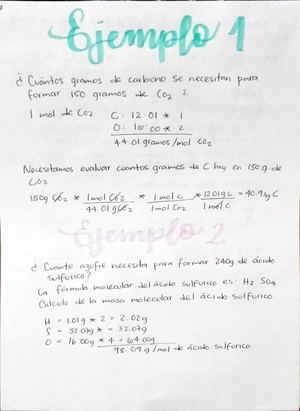 Ejemplo 1
¿ Cuántos gramos de carbono se necesitan para
formar 150 gramos de Co2 ?
1 mol de Co2 C: 12.01 * 1
O: 16.00 * 2
44.01 gramos/mol CO2
Necesitamos evaluar cuantos gramos de C hay en 150 g. de
CO2
150g CO2 * 1mol CO2 / 44.01 g CO2 * 1mol C / 1mol CO2 * 12.01g C / 1mol C = 40.9 kg C
Ejemplo 2
¿ Cuánto azufre necesita para formar 240g de ácido
sulfurico?
La fórmula molecular del ácido sulfurico es: H2 SO4
Calculo de la masa molecular del ácido sulfurico
H = 1.01g * 2 = 2.02g
S = 32.07g * = 32.07g
O = 16.00g * 4 = 64.00g
98.09 g/mol de ácido sulfurico